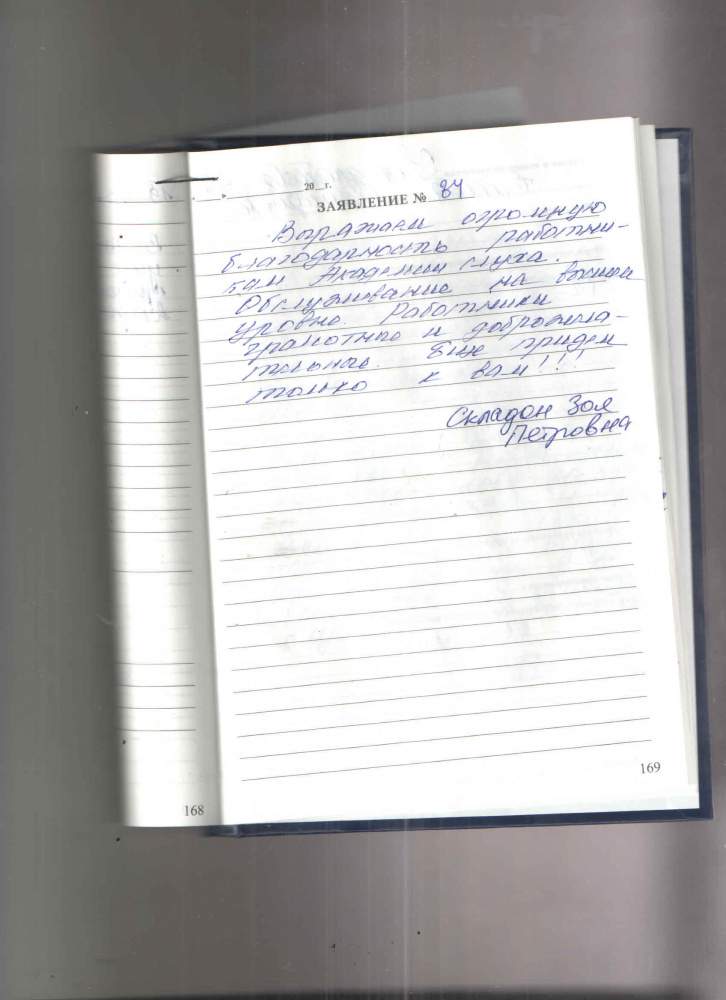 20__г.
ЗАЯВЛЕНИЕ № 84
Выражаем огромную
благодарность работни-
кам Академии слуха.
Обслуживание на высшем
уровне. Работники
грамотные и доброжела-
тельные. Еще придем
только к вам!!!
Складон Зоя
Петровна
169
168